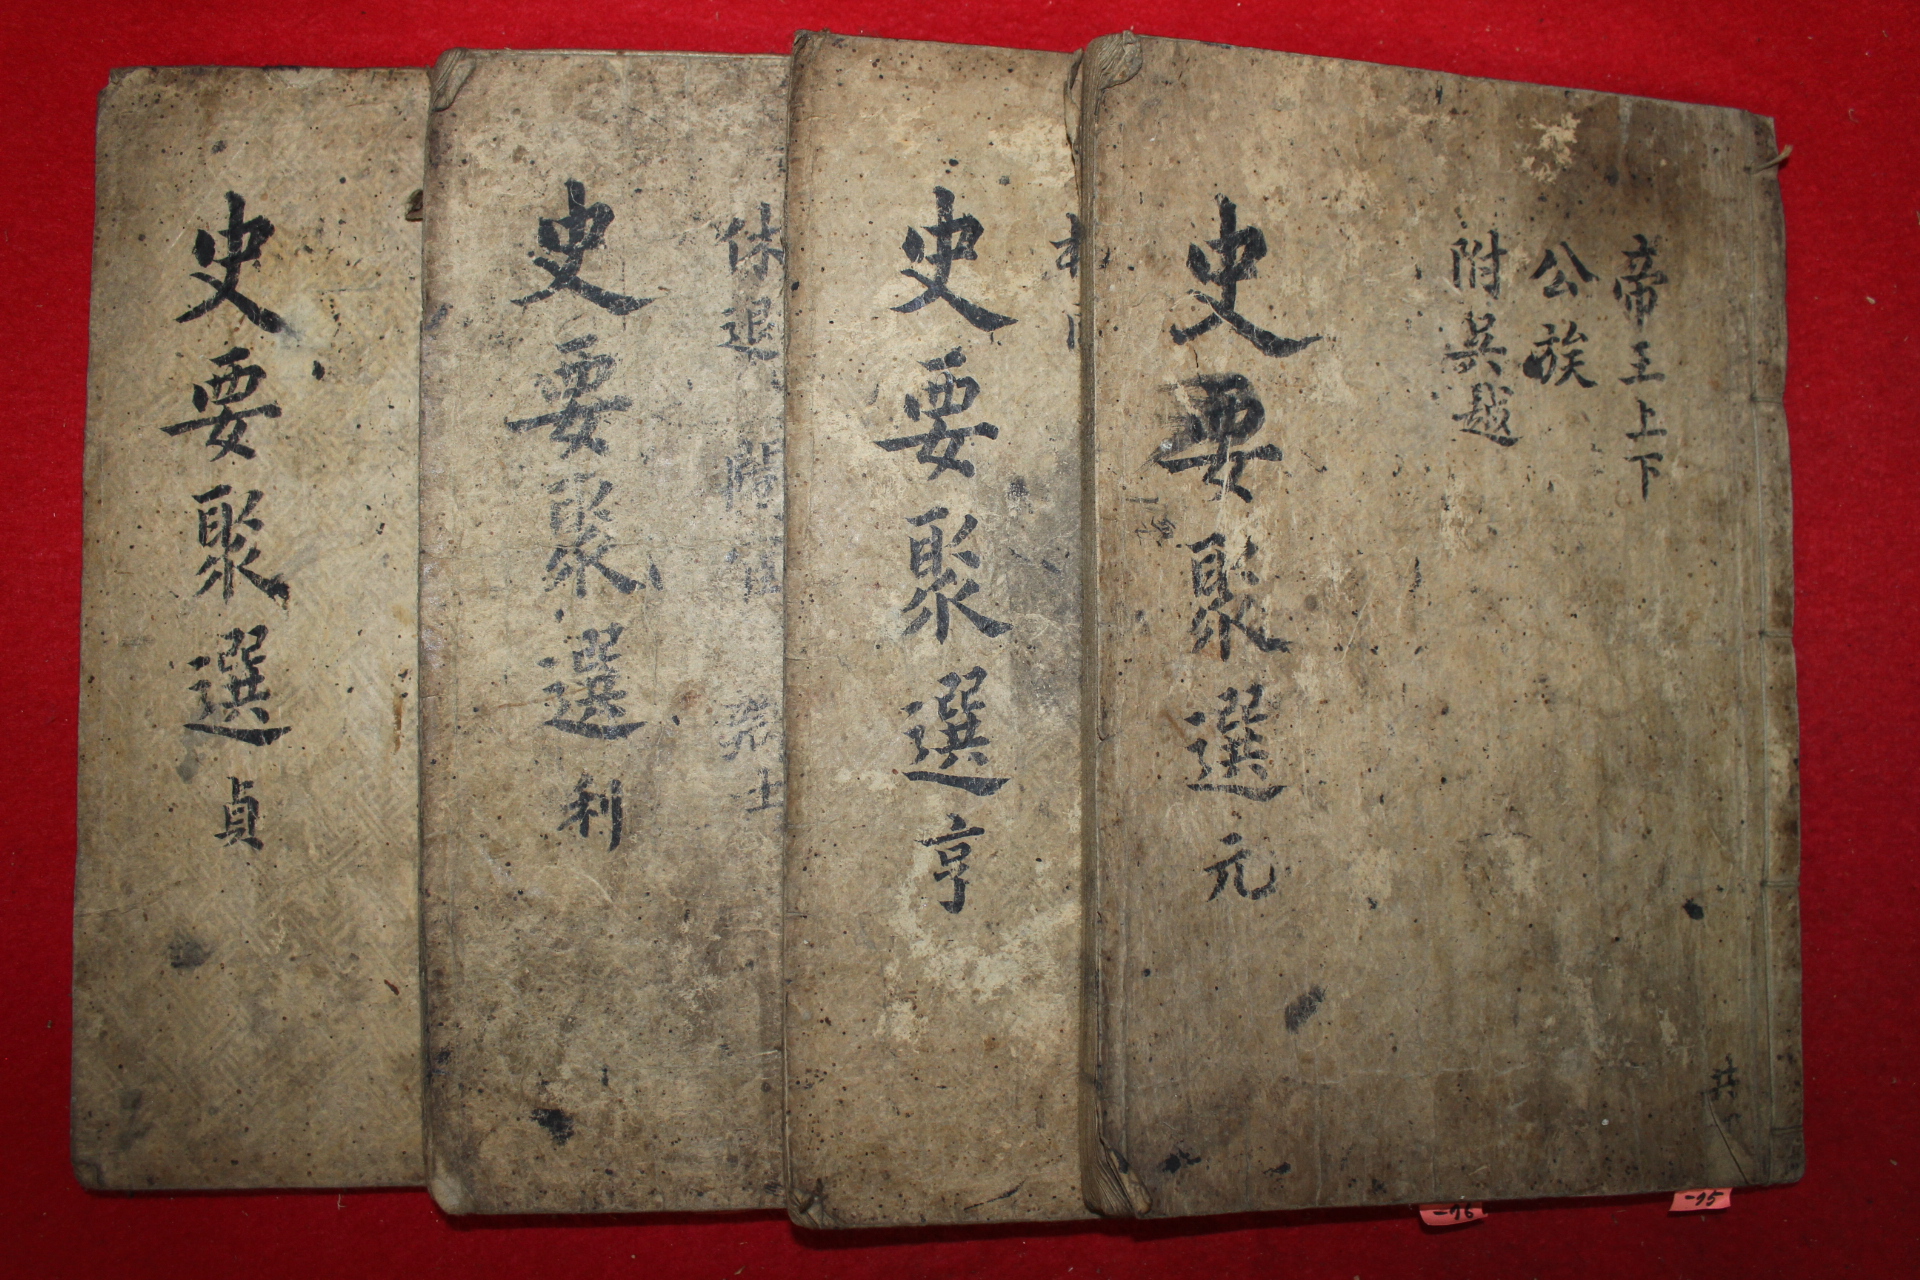 帝王上下
公族
附吳越
史要聚選 元
史要聚選 亨
休退
史要聚選 利
史要聚選 貞
-75
-76